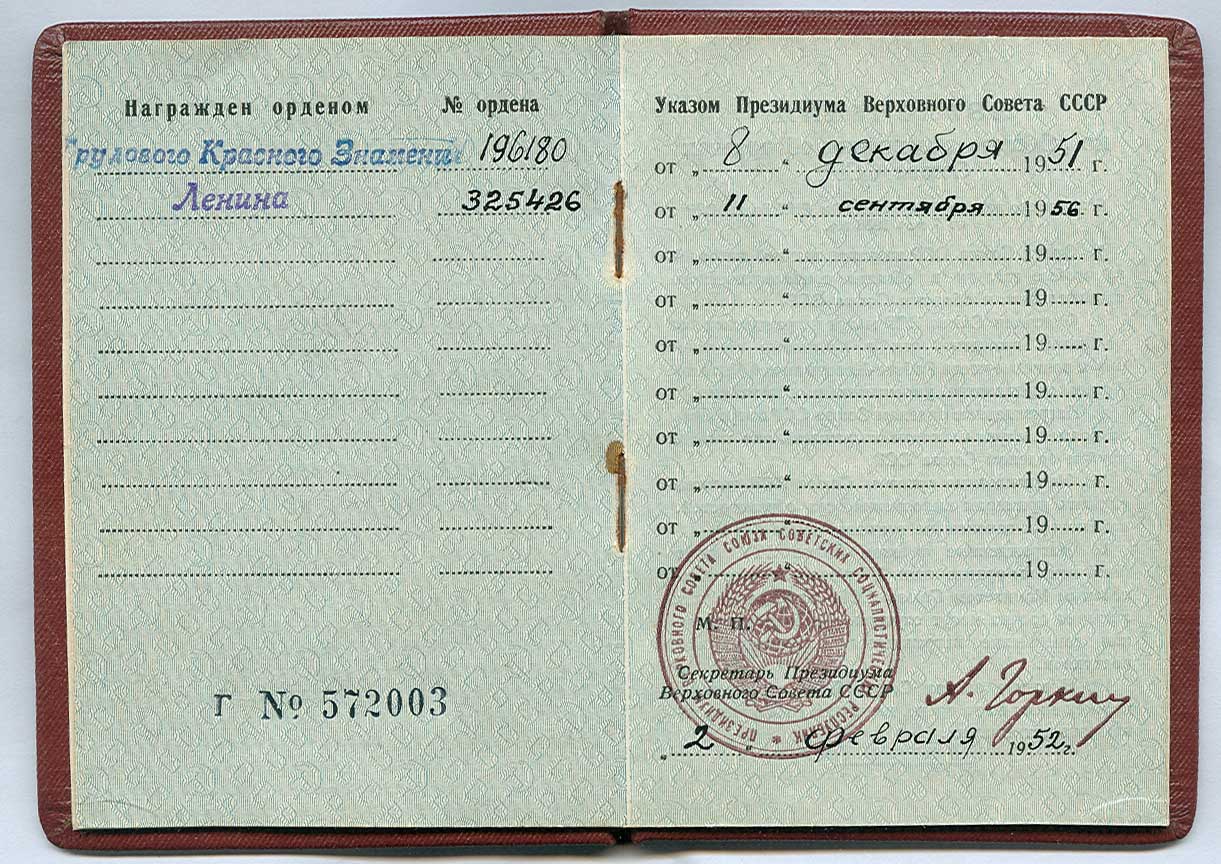 Награжден орденом № ордена
Трудового Красного Знамени 196180
Ленина 325426
Г № 572003
Указом Президиума Верховного Совета СССР
от „ 8 “ декабря 1951 г.
от „ 11 “ сентября 1956 г.
от „ “ 19 г.
от „ “ 19 г.
от „ “ 19 г.
от „ “ 19 г.
от „ “ 19 г.
от „ “ 19 г.
от „ “ 19 г.
от „ “ 19 г.
ПРЕЗИДИУМ ВЕРХОВНОГО СОВЕТА СОЮЗА СОВЕТСКИХ СОЦИАЛИСТИЧЕСКИХ РЕСПУБЛИК
М. П.
Секретарь Президиума
Верховного Совета СССР
А. Горкин
„ 2 “ февраля 1952 г.